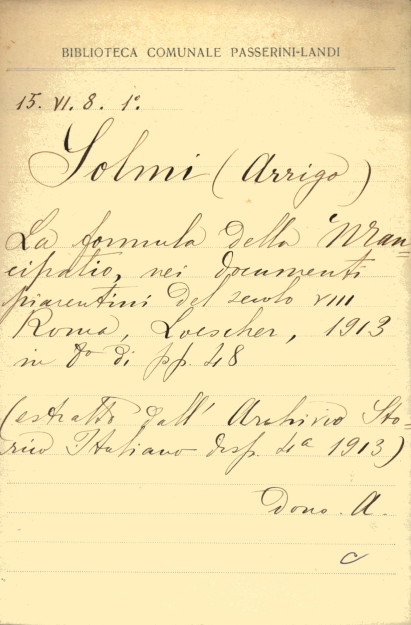 BIBLIOTECA COMUNALE PASSERINI-LANDI
15. VI. 8. 1º.
Solmi (Arrigo)
La formula della Man-
cipatio, nei documenti
piacentini del secolo VIII
Roma, Loescher, 1913
in 8º di pp. 48
(estratto dall' Archivio Sto-
rico Italiano disp. 4ª 1913)
Dono. A.
C